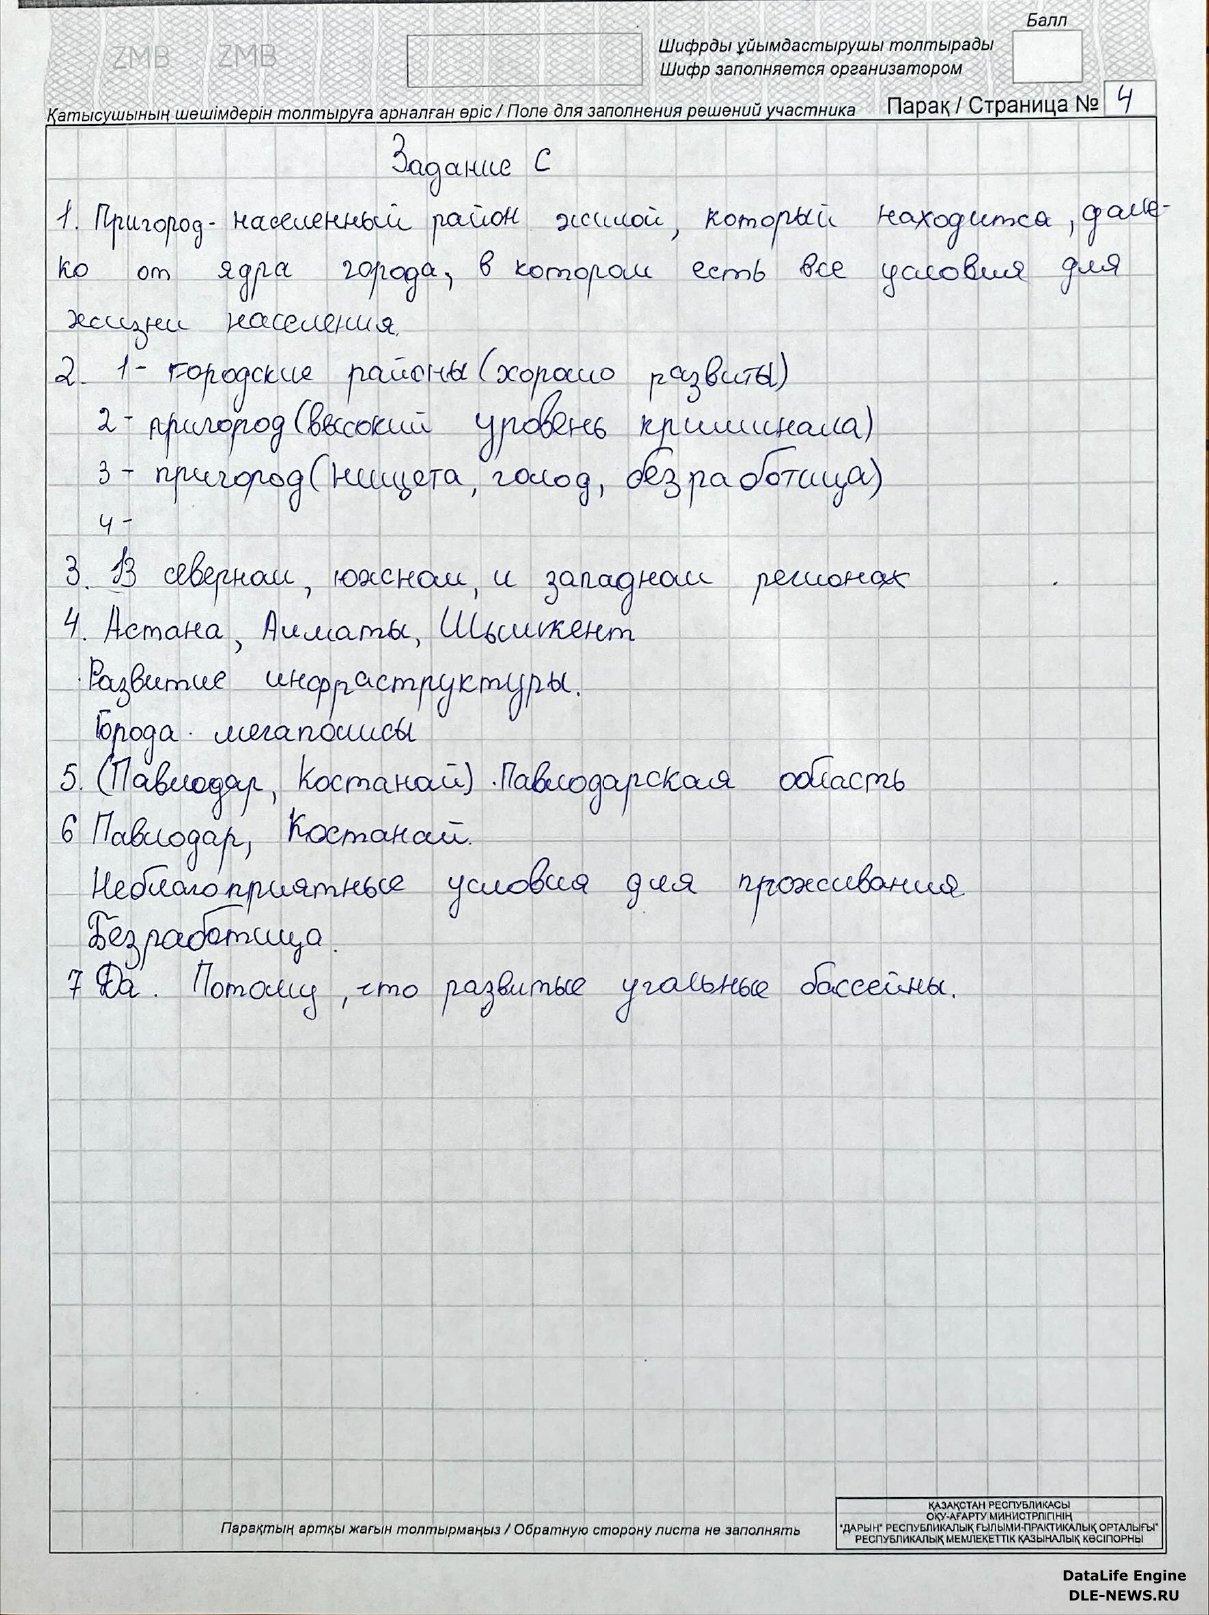 Балл
ZMB ZMB
Шифрды ұйымдастырушы толтырады
Шифр заполняется организатором
Қатысушының шешімдерін толтыруға арналған өріс / Поле для заполнения решений участника
Парақ / Страница № 4
Задание С
1. Пригород - населенный район жилой, который находится, дале-
ко от ядра города, в котором есть все условия для
жизни населения.
2. 1 - городские районы (хорошо развиты)
2 - пригород (высокий уровень криминала)
3 - пригород (нищета, голод, безработица)
4 -
3. В северном, южном, и западном регионах
4. Астана, Алматы, Шымкент
Развитие инфраструктуры.
Города мегаполисы
5. (Павлодар, Костанай). Павлодарская область
6 Павлодар, Костанай.
Неблагоприятные условия для проживания.
Безработица.
7 Да. Потому, что развитые угольные бассейны.
Парақтың артқы жағын толтырмаңыз / Обратную сторону листа не заполнять
ҚАЗАҚСТАН РЕСПУБЛИКАСЫ
ОҚУ-АҒАРТУ МИНИСТРЛІГІНІҢ
"ДАРЫН" РЕСПУБЛИКАЛЫҚ ҒЫЛЫМИ-ПРАКТИКАЛЫҚ ОРТАЛЫҒЫ"
РЕСПУБЛИКАЛЫҚ МЕМЛЕКЕТТІК ҚАЗЫНАЛЫҚ КӘСІПОРНЫ
DataLife Engine
DLE-NEWS.RU